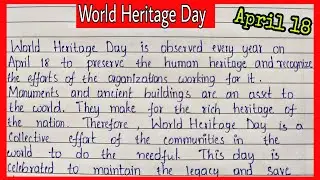 World Heritage Day
April 18
World Heritage Day is observed every year on
April 18 to preserve the human heritage and recognize
the efforts of the organizations working for it.
Monuments and ancient buildings are an asset to
the world. They make for the rich heritage of
the nation. Therefore, World Heritage Day is a
collective effort of the communities in the
world to do the needful. This day is
celebrated to maintain the legacy and save